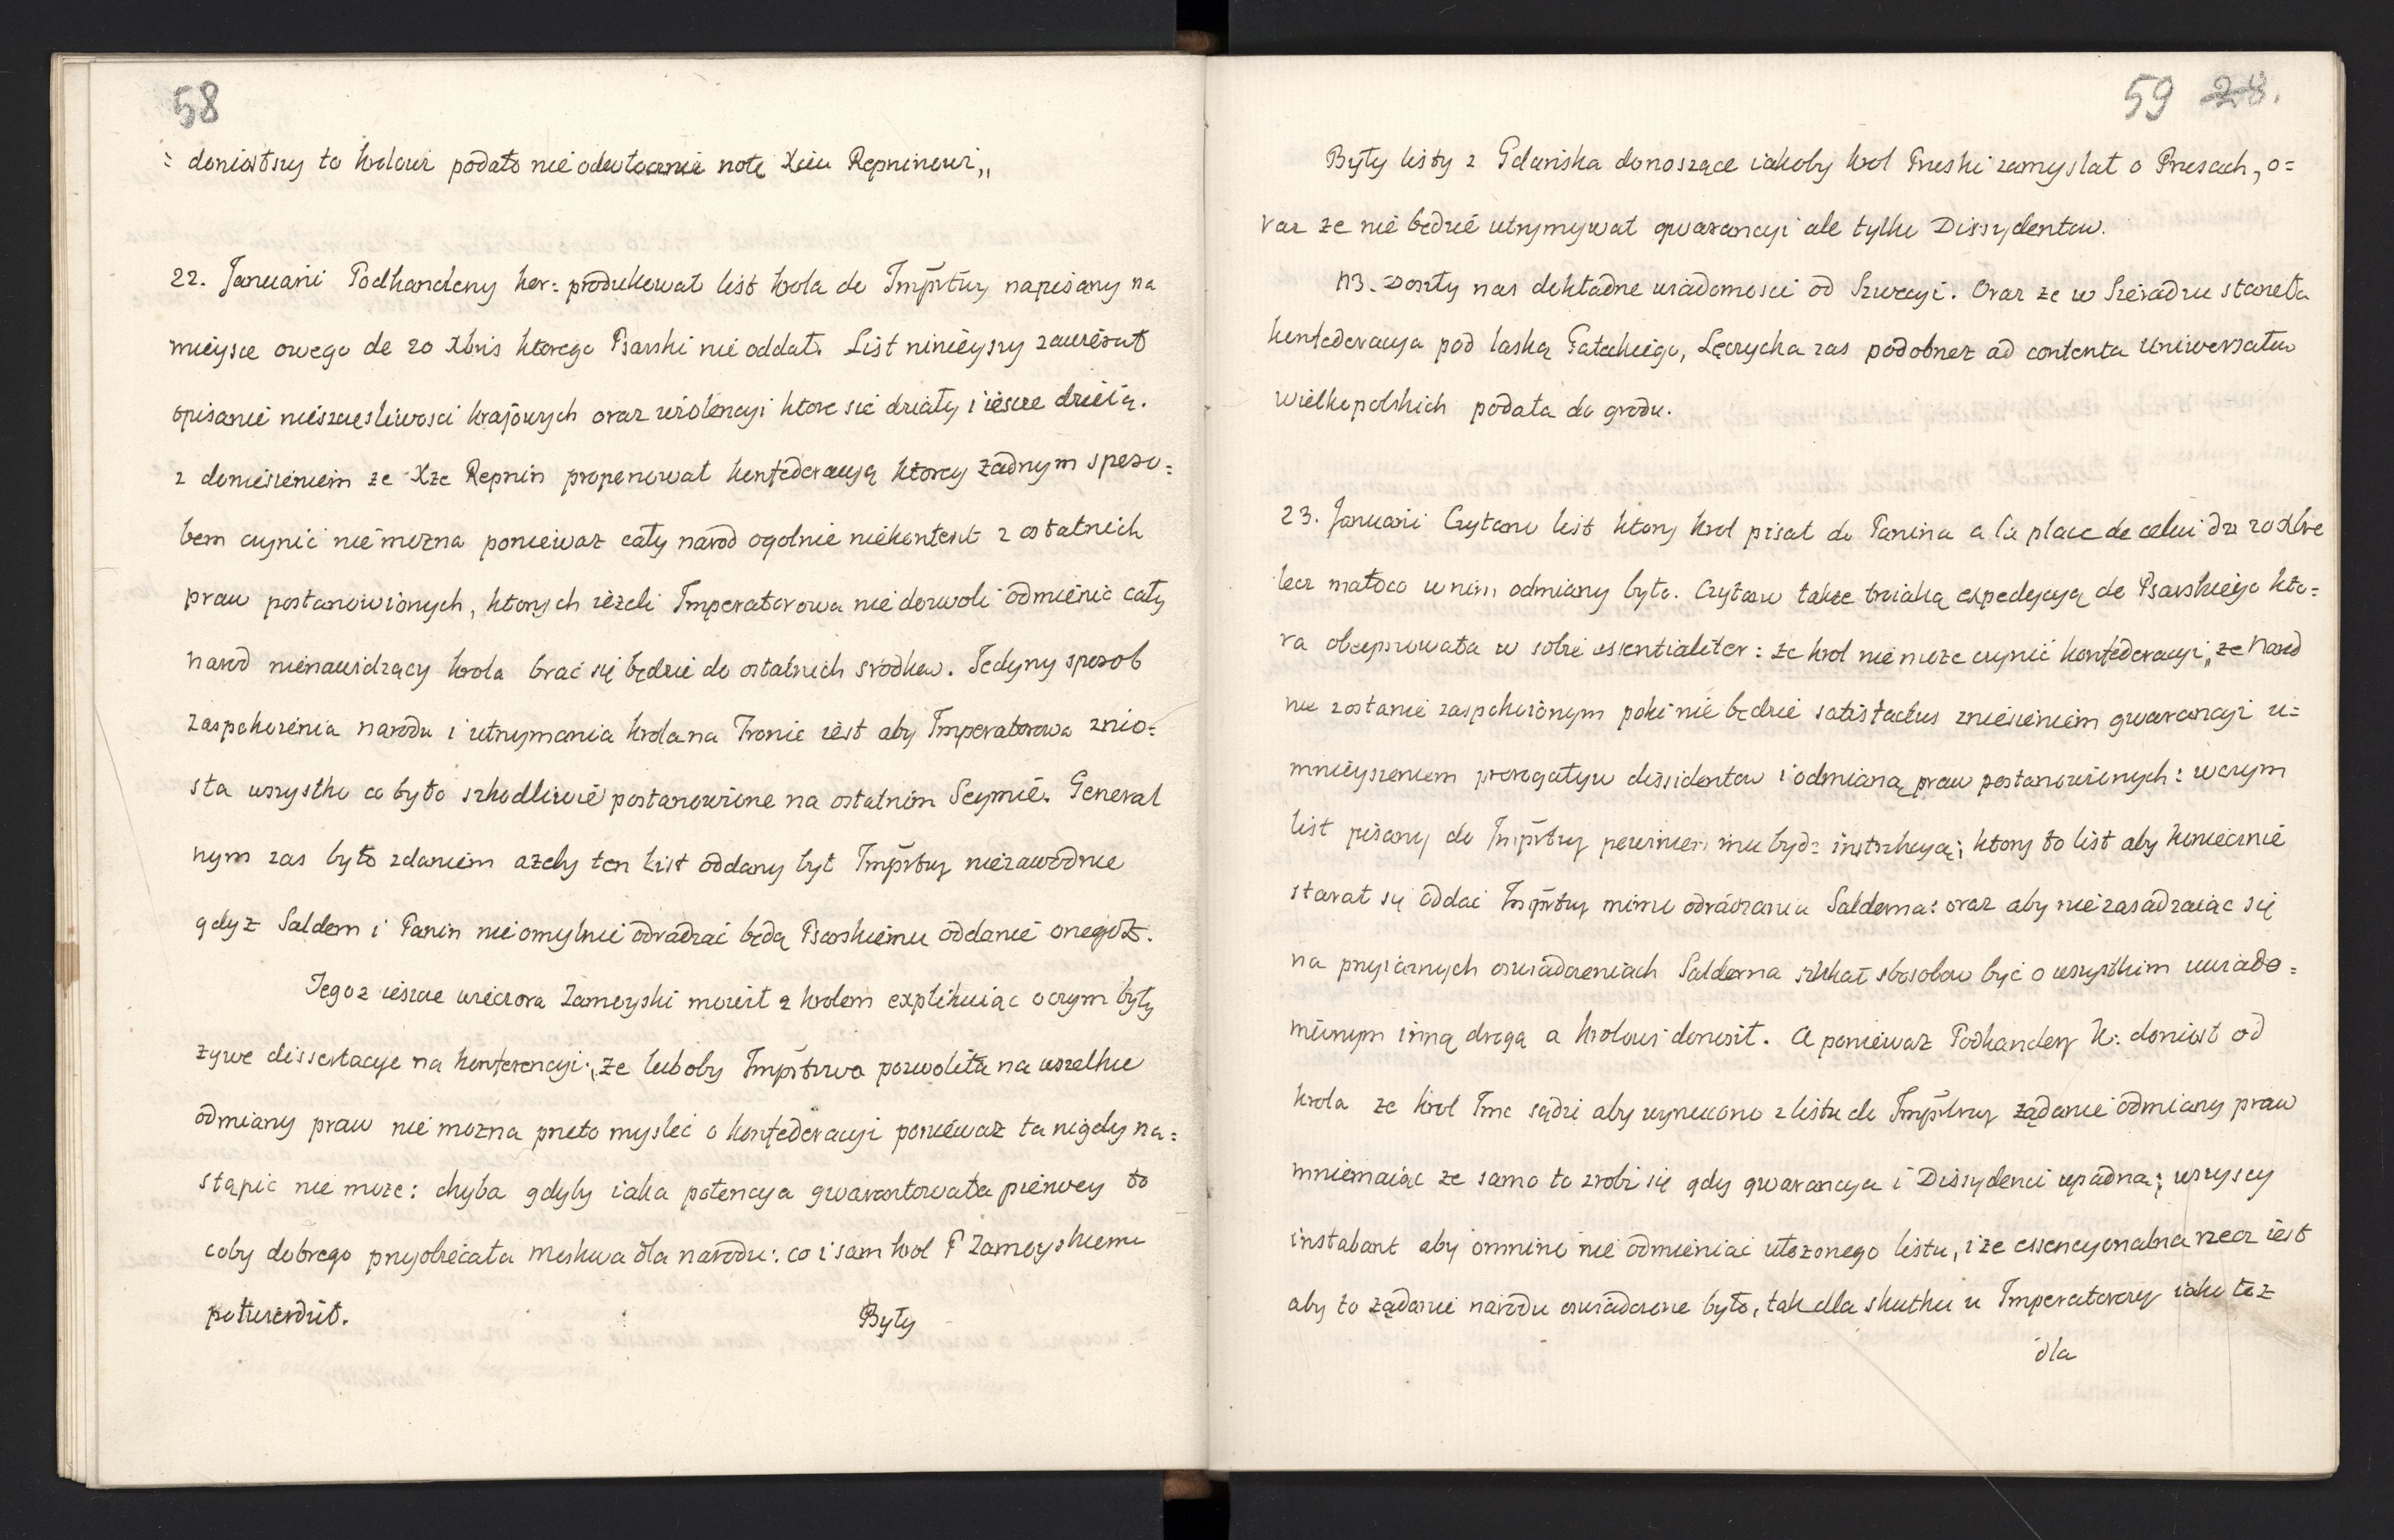 58
= doniosłszy to krolowi podało nieodwłocznie notę Xciu Repninowi„
22. Januarii Podkanclerzy kor: produkował list krola do Impřtwy napisany na
mieysce owego de 20 Xbris ktorego Psarski nie oddał. List ninieyszy zawierał
opisanie nieszczęsliwosci krajowych oraz wiolencyi ktore sie działy i ieszcze dzieią.
z doniesieniem ze Xże Repnin proponował konfederacyą ktorey żadnym sposo=
bem czynić nie mozna poniewaz cały narod ogolnie niekontent z ostatnich
praw postanowionych, ktorych ieżeli Imperatorowa nie dozwoli odmienic cały
narod nienawidzący krola brać się będzie do ostatnich srodkow. Jedyny sposob
zaspokoienia narodu i utrzymania krola na Tronie iest aby Imperatorowa znio=
sła wszystko co było szkodliwie postanowione na ostatnim Seymie. General
nym zas było zdaniem azeby ten list oddany był Impřtwy niezawodnie
gdyz Saldern i Panin nieomylnie odradzać będą Psarskiemu oddanie onegoż.
Tegoz ieszcze wieczora Zamoyski mowił z krolem explikuiąc o czym były
zywe dissertacye na konferencyi:„ że luboby Impřtwa pozwoliła na wszelkie
odmiany praw nie mozna przeto myslec o konfederacyi poniewaz ta nigdy na=
stąpic nie moze: chyba gdyby iaka potencya gwarantowała pierwey to
coby dobrego przyobiecała Moskwa dla narodu: co i sam krol P Zamoyskiemu
potwierdził.
Były
59 28.
Były listy z Gdańska donoszące iakoby krol Pruski zamyslał o Prusach, o=
raz ze nie będzie utrzymywał gwarancyi ale tylko Dissydentow.
NB. Doszły nas dokładne wiadomosci od Szwecyi. Oraz ze w Sieradzu stanęła
konfederacya pod laską Gałeckiego, Łęczycka zas podobnez ad contenta Uniwersałow
wielkopolskich podała do grodu.
23. Januarii Czytano list ktory krol pisał do Panina a la place de celui du 20 Xbre
lecz małoco w nim odmiany było. Czytano także troiaką expedycyą do Psarskiego kto=
ra obeymowała w sobie essentialiter: że krol nie moze czynić konfederacyi„ ze Narod
nie zostanie zaspokoionym poki nie będzie satisfactus zniesieniem gwarancyi u=
mnieyszeniem prerogatyw dissidentow i odmianą praw postanowionych: w czym
list pisany do Impřtwy powinien mu bydz instrukcyą; ktory to list aby koniecznie
starał się oddać Impřtwy mimo odradzania Salderna: oraz aby nie zasadzaiąc się
na przyiaznych oswiadczeniach Salderna szukał sposobow być o wszystkim uwiado=
mionym inną drogą a krolowi donosił. A poniewaz Podkanclerzy K: doniosł od
krola ze krol Jmc sądzi aby wyrzucono z listu do Impřtwy żądanie odmiany praw
mniemaiąc ze samo to zrobi się gdy gwarancya i Dissydenci upadną; wszyscy
instabant aby omnino nie odmieniać ułozonego listu, i że essencyonalna rzecz iest
aby to żądanie narodu oswiadczone było, tak dla skutku u Imperatorowy iako też
dla